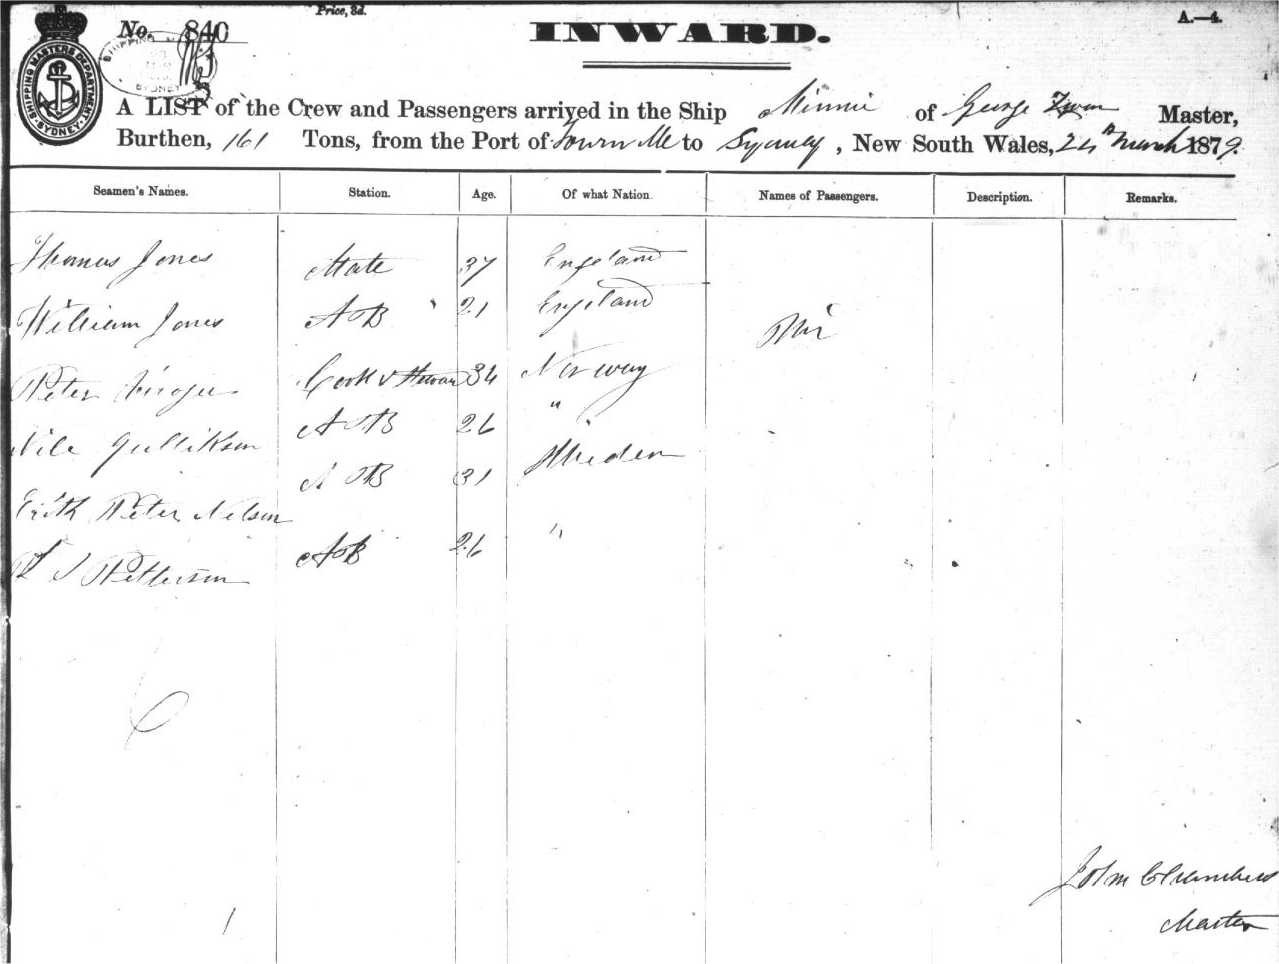 Price, 3d.
A.—4.
No. 840
INWARD.
SHIPPING MASTERS DEPARTMENT SYDNEY
A LIST of the Crew and Passengers arrived in the Ship Minnie of George Town Master,
Burthen, 161 Tons, from the Port of Townville to Sydney, New South Wales, 24th March 1879.
Seamen's Names. Station. Age. Of what Nation. Names of Passengers. Description. Remarks.
Thomas Jones Mate 37 England
William Jones AB 21 England Nil
Peter Cook & Steward 34 Norway
Gullikson AB 26 "
Peter Nelson AB 31 Sweden
Petterson AB 26 "
John Chambers
Master